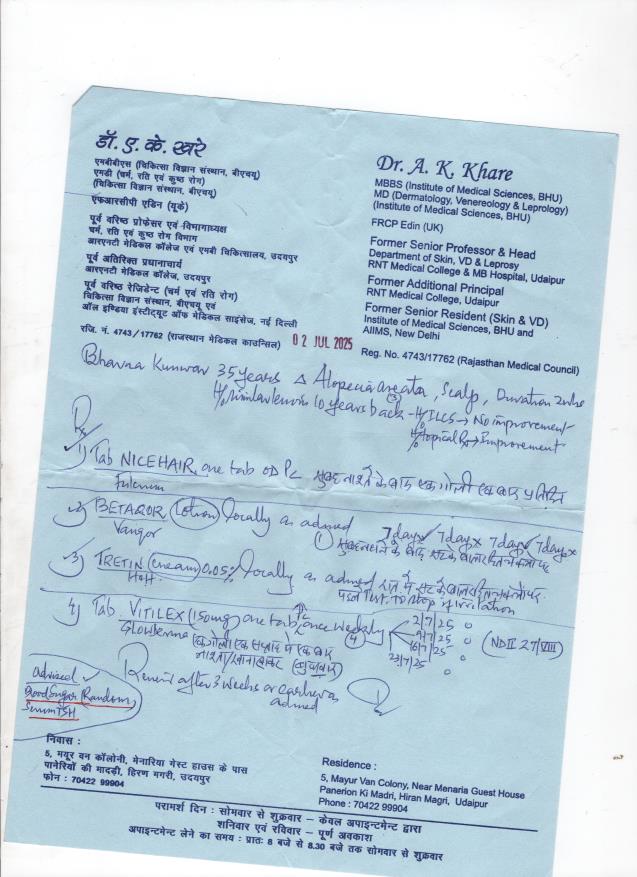 डॉ. ए. के. खरे
एमबीबीएस (चिकित्सा विज्ञान संस्थान, बीएचयू)
एमडी (चर्म, रति एवं कुष्ठ रोग)
(चिकित्सा विज्ञान संस्थान, बीएचयू)
एफआरसीपी एडिन (यूके)
पूर्व वरिष्ठ प्रोफेसर एवं विभागाध्यक्ष
चर्म, रति एवं कुष्ठ रोग विभाग
आरएनटी मेडिकल कॉलेज एवं एमबी चिकित्सालय, उदयपुर
पूर्व अतिरिक्त प्रधानाचार्य
आरएनटी मेडिकल कॉलेज, उदयपुर
पूर्व वरिष्ठ रेजिडेन्ट (चर्म एवं रति रोग)
चिकित्सा विज्ञान संस्थान, बीएचयू एवं
ऑल इण्डिया इंस्टीट्यूट ऑफ मेडिकल साइंसेज, नई दिल्ली
रजि. नं. 4743/17762 (राजस्थान मेडिकल काउन्सिल)
Dr. A. K. Khare
MBBS (Institute of Medical Sciences, BHU)
MD (Dermatology, Venereology & Leprology)
(Institute of Medical Sciences, BHU)
FRCP Edin (UK)
Former Senior Professor & Head
Department of Skin, VD & Leprosy
RNT Medical College & MB Hospital, Udaipur
Former Additional Principal
RNT Medical College, Udaipur
Former Senior Resident (Skin & VD)
Institute of Medical Sciences, BHU and
AIIMS, New Delhi
Reg. No. 4743/17762 (Rajasthan Medical Council)
02 JUL 2025
Bhavna Kunwar 35 years Δ Alopecia areata, Scalp, Duration
H/o similar lesion 10 years back - H/o ILCS → No improvement
H/o topical Rx → Improvement
Rx
1) Tab NICEHAIR one tab OD PC सुबह नाश्ते के बाद एक गोली एक बार प्रतिदिन
Fulcrum
2) BETAQOR (Lotion) locally as advised 7 days✓ 7 days× 7 days✓ 7 days×
①
3) TRETIN (cream) 0.05% locally as advised
To stop if irritation
4) Tab. VITILEX (150mg) one tab once weekly
एक गोली एक सप्ताह में एक बार
2/7/25
9/7/25
16/7/25
23/7/25
Review after 3 weeks or earlier as
advised
advised ✓
Blood Sugar (Random)
Serum TSH
निवास :
5, मयूर वन कॉलोनी, मेनारिया गेस्ट हाउस के पास
पानेरियों की मादड़ी, हिरण मगरी, उदयपुर
फोन : 70422 99904
Residence :
5, Mayur Van Colony, Near Menaria Guest House
Panerion Ki Madri, Hiran Magri, Udaipur
Phone : 70422 99904
परामर्श दिन : सोमवार से शुक्रवार – केवल अपाइन्टमेन्ट द्वारा
शनिवार एवं रविवार – पूर्ण अवकाश
अपाइन्टमेन्ट लेने का समय : प्रातः 8 बजे से 8.30 बजे तक सोमवार से शुक्रवार